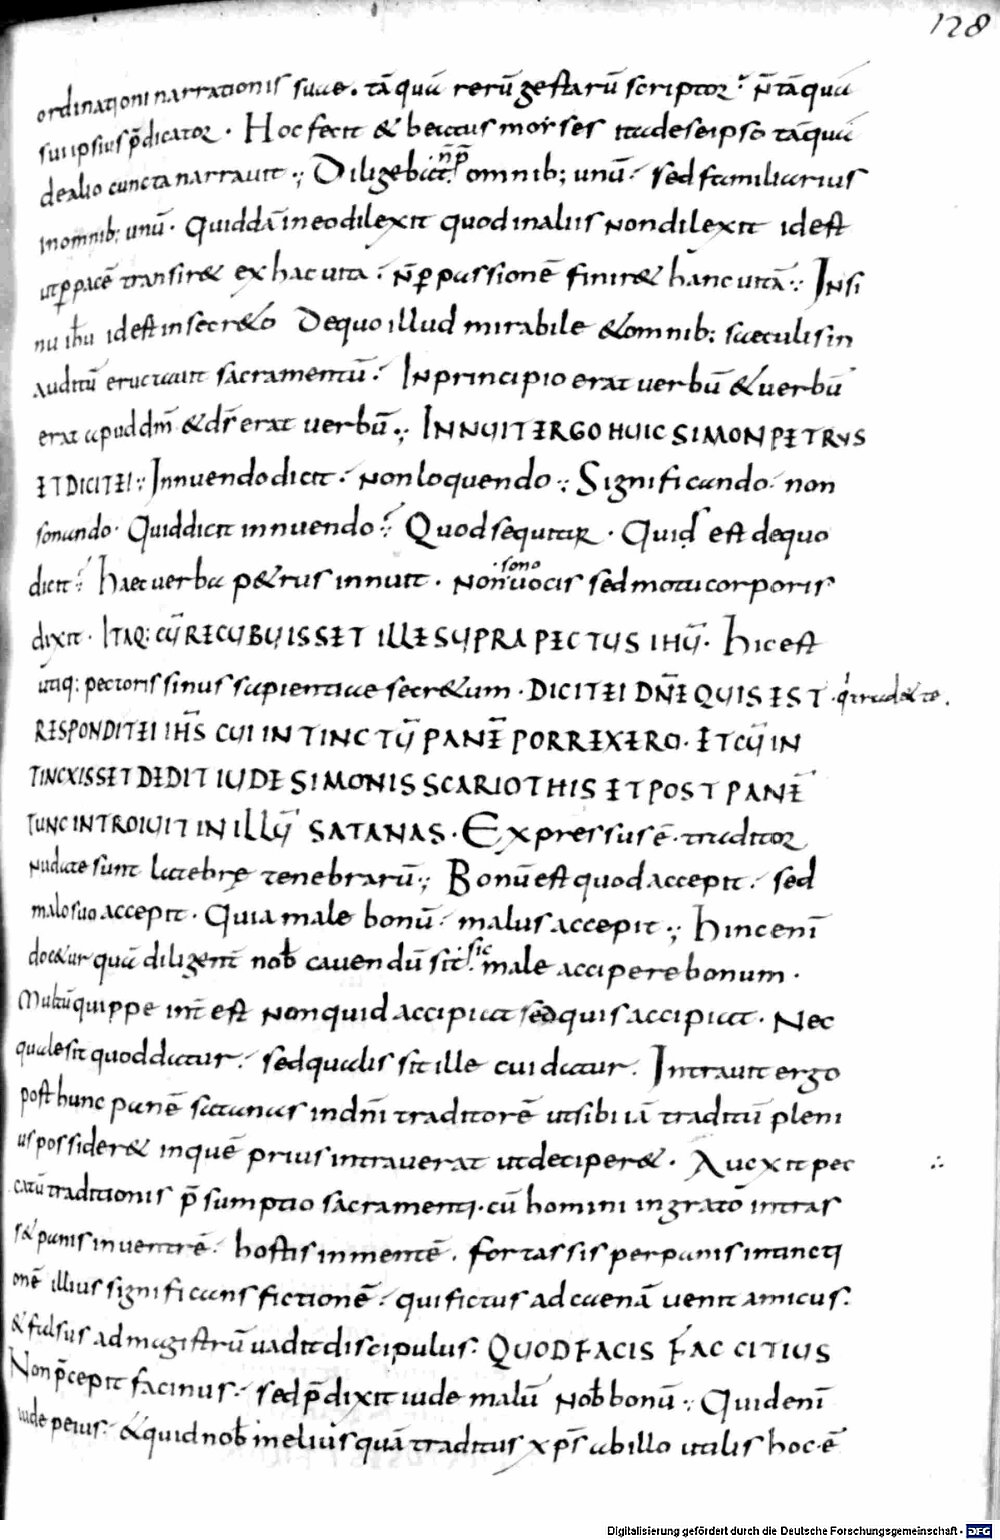 128
ordinationi narrationis suae. tā quā rerū gestarū scriptor. n̄ tā quā
sui ipsius p̄dicator. Hoc fecit & beatus morses ita de seipso tā quā
de alio cuncta narravit; Diligebat n̄ p̄ omnib; unū. sed familiarius
in omnib; unū. Quiddā in eo dilexit quod in aliis non dilexit id est
ut p̲ pacē transir& ex hac vita. n̄ p̲ passionē finir& hanc vitā; In si
nu ih̄u id est in secr&o De quo illud mirabile & omnib; saeculis in
auditū eructavit sacramentū. In principio erat verbū & verbū
erat apud dm̄ & ds̄ erat verbū; INNUIT ERGO HUIC SIMON PETRUS
ET DICIT EI; Innuendo dicit. Non loquendo; Significando. non
sonando. Quid dicit innuendo? Quod sequitur. Quis est de quo
dicit? haec verba p&rus innuit. Non sono vocis sed motu corporis
dixit. ITAQ; CŪ RECUBUISSET ILLE SUPRA PECTUS IHŪ. Hic est
utiq; pectoris sinus sapientiae secr&um. DICIT EI DN̄E QUIS EST. q' trad& te.
RESPONDIT EI IHS̄ CUI INTINCTŪ PANĒ PORREXERO. ET CŪ IN
TINCXISSET DEDIT IUDE SIMONIS SCARIOTHIS ET POST PANĒ
TUNC INTROIUIT IN ILLŪ SATANAS. Expressus ē. traditor
nudate sunt latebrę tenebrarū; Bonū est quod accepit. sed
malo suo accepit. Quia male bonū. malus accepit; Hinc enī
doc&ur quā diligent̄ nob̄ cavendū sit. sic male accipere bonum.
Multū quippe int̄ est Non quid accipiat sed quis accipiat. Nec
quale sit quod datur. sed qualis sit ille cui datur. Intravit ergo
post hunc panē satanas in dn̄i traditorē ut sibi iā traditū pleni
us possider& in quē prius intraverat ut deciper&. Auexit pec
catū traditionis p̄sumptio sacramenti. cū homini ingrato intras
s& panis in ventrē. hostis in mentē. fortassis per panis intincti
onē illius significans fictionē. qui fictus ad caenā venit amicus.
& falsus ad magistrū vadit discipulus. QUOD FACIS FAC CITIUS
Non p̄cepit facinus. sed p̄dixit iude malū nob̄ bonū; Quid enī
iude peius. & quid nob̄ melius quā traditus xp̄s ab illo utilis hoc ē
Digitalisierung gefördert durch die Deutsche Forschungsgemeinschaft - DFG